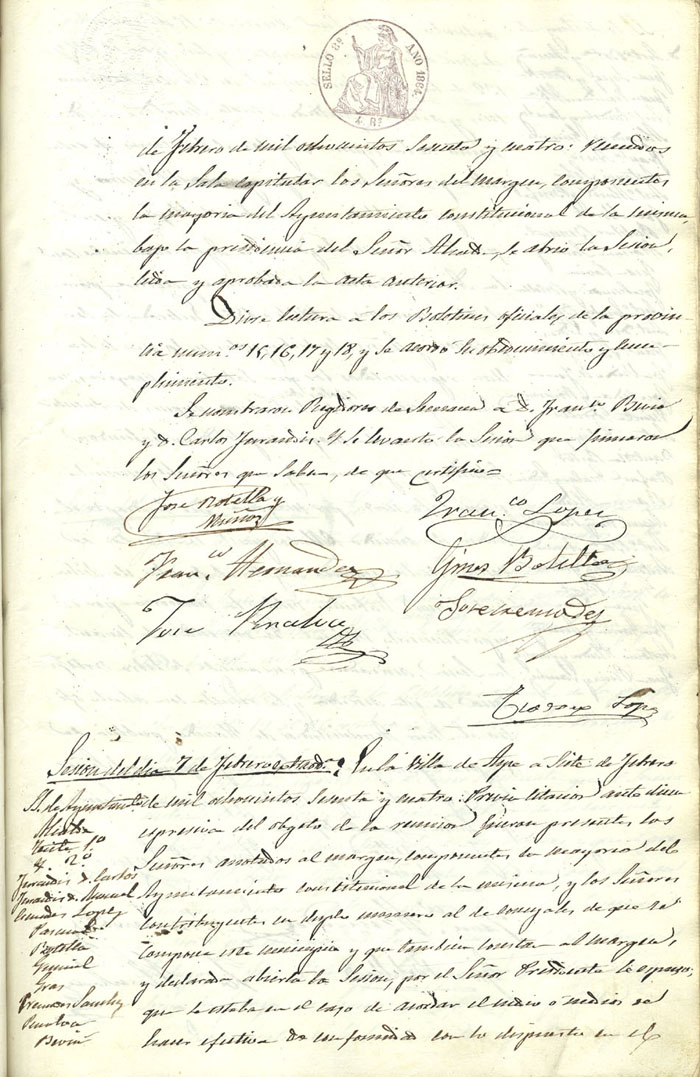 SELLO 8º AÑO 1864
4 Rs
de Febrero de mil ochocientos sesenta y cuatro: Reunidos
en la Sala capitular los Señores del margen, componentes
la mayoria del Ayuntamiento constitucional de la misma,
bajo la presidencia del Señor Alcalde, se abrió la Sesion,
leida y aprobada la acta anterior.
Diose lectura a los Boletines oficiales de la provin-
cia num.os 15, 16, 17 y 18, y se acordó su cum-
plimiento.
Se nombraron Regidores de Semana a D. Fran.co
y D. Carlos Jurandis. Y se levantó la Sesion que firmaron
los Señores que saben, de que certifico=
Jose Botella y
Muñoz
Fran.co Lopez
Fran.co Hernandez
Gines Botella
Jose
Jose Cremades
Lopez
Sesion del dia 7 de Febrero
En la Villa de Aspe a Siete de Febrero
SS. de Ayuntamto
de mil ochocientos sesenta y cuatro: Previa citacion ante diem
Alcalde
espresiva del objeto de la reunion fueron presentes los
Tente 1º
Señores anotados al margen, componentes la mayoria del
Y. 2º
Jurandis D. Carlos
Ayuntamiento constitucional de la misma, y los Señores
Jurandis D. Manuel
contribuyentes en duplo numero al de concejales de que se
Cremades Lopez
compone este municipio y que tambien constan al margen,
Pascual
y declarada abierta la Sesion, por el Señor Presidente se espuso;
Botella
que se estaba en el caso de acordar el medio o medios de
Gras
Cremades Sanchez
hacer efectiva de conformidad con lo dispuesto en el